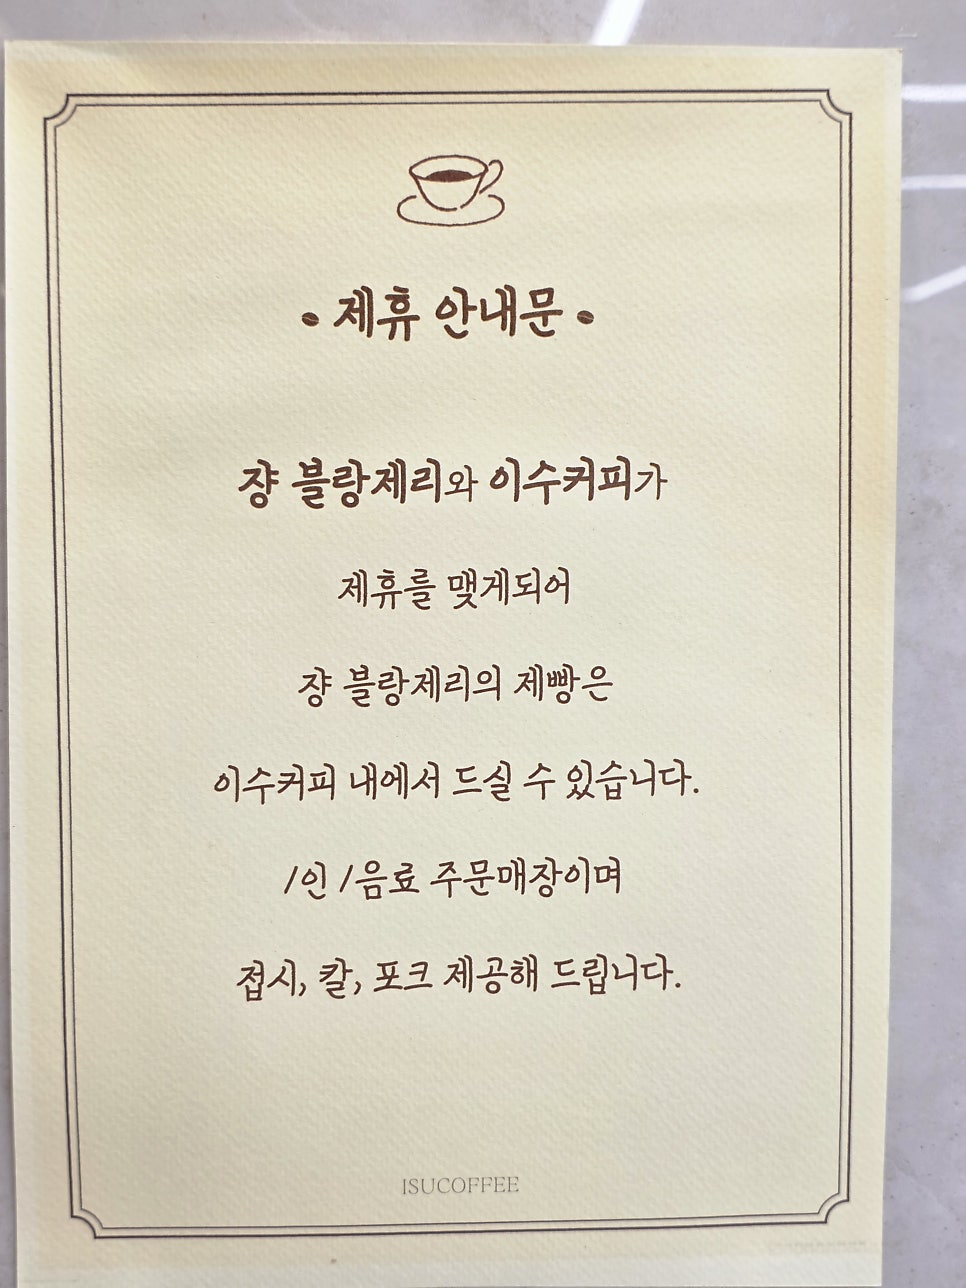 제휴 안내문
쟝 블랑제리와 이수커피가
제휴를 맺게되어
쟝 블랑제리의 제빵은
이수커피 내에서 드실 수 있습니다.
1인 1음료 주문매장이며
접시, 칼, 포크 제공해 드립니다.
ISUCOFFEE